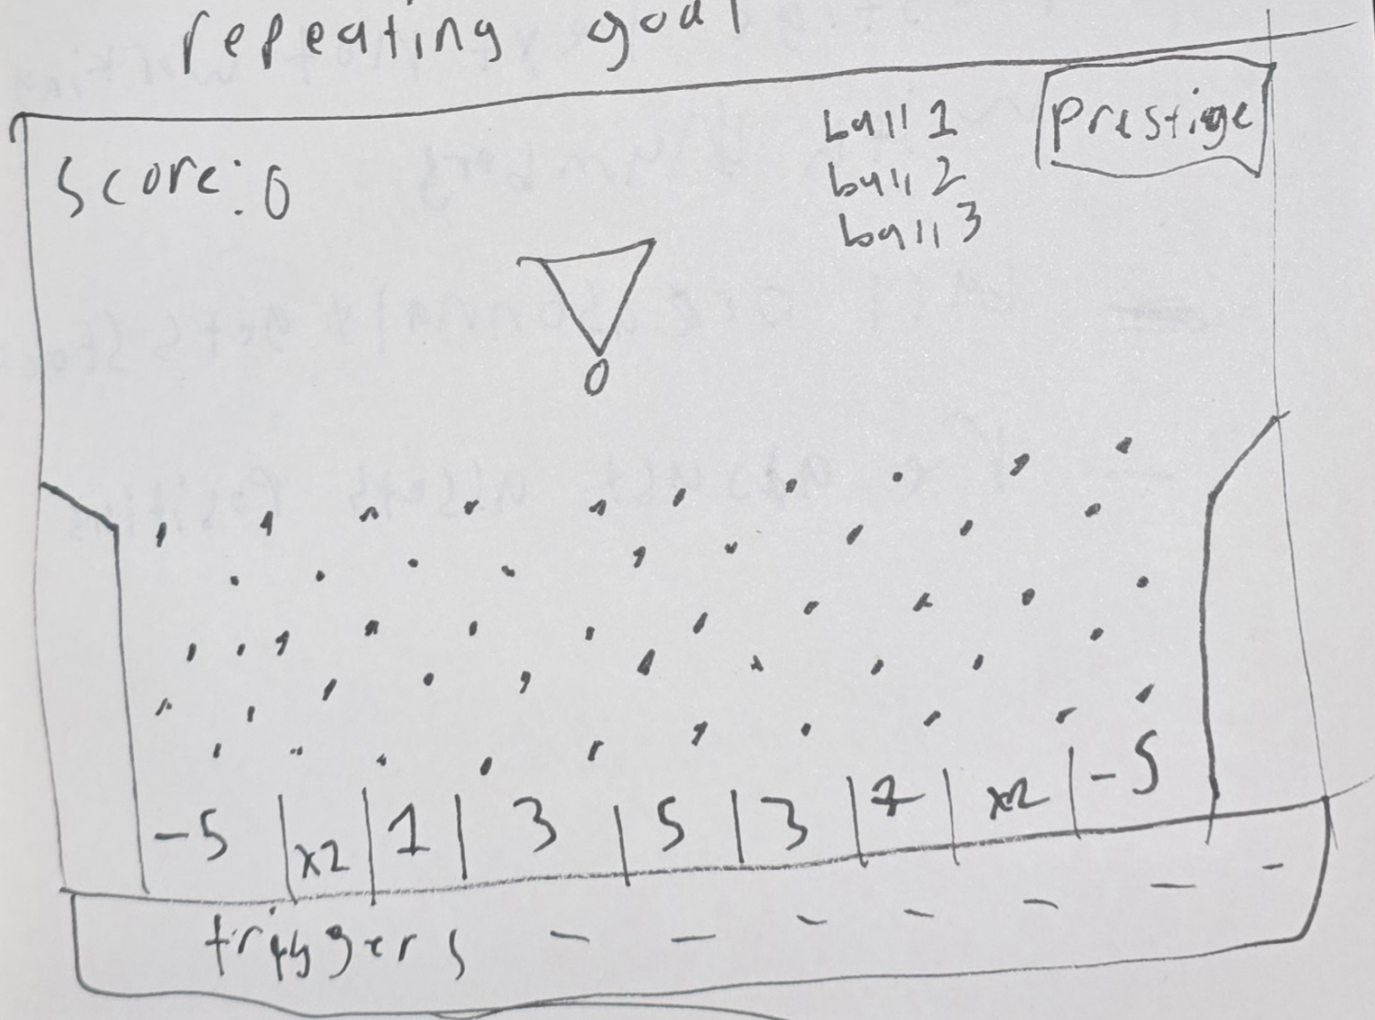 repeating goal
Score: 0
ball 1
ball 2
ball 3
Prestige
-5 x2 1 3 5 3 7 x2 -5
triggers